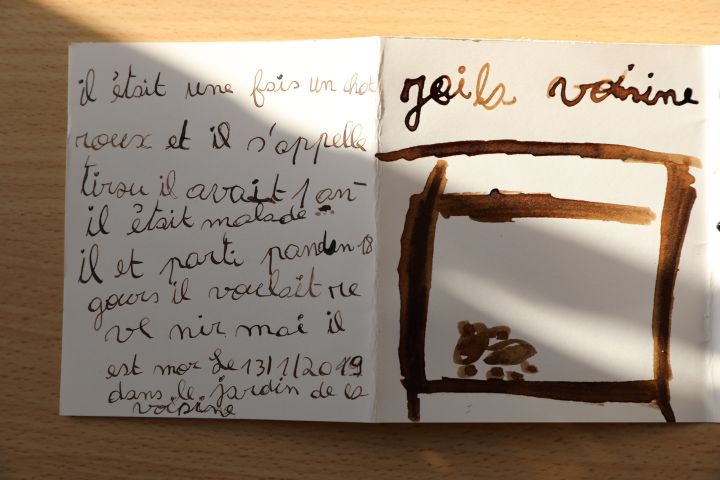 il était une fois un chat
roux et il s'appelle
tirou il avait 1 an
il était malade...
il et parti panden 18
gours il voulait re
ve nir mai il
est mor Le 13/1/2019
dans le jardin de la
voisine
voisine